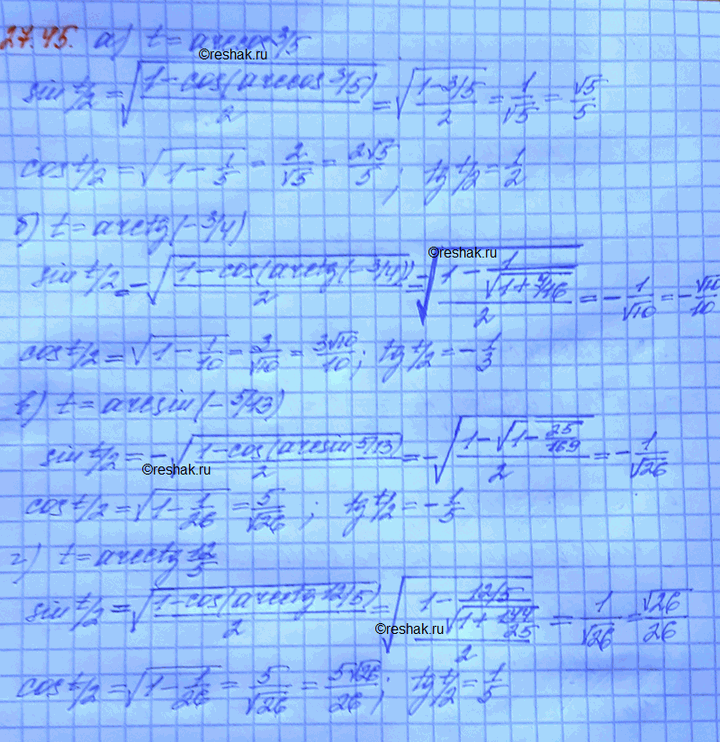 27.45. а) t = arccos 3/5
©reshak.ru
sin t/2 = √((1-cos(arccos 3/5))/2) = √((1-3/5)/2) = 1/√5 = √5/5
cos t/2 = √(1 - 1/5) = 2/√5 = 2√5/5; tg t/2 = 1/2
б) t = arctg(-3/4)
©reshak.ru
sin t/2 = -√((1-cos(arctg(-3/4)))/2) = √((1 - 1/√(1+9/16))/2) = -1/√10 = -√10/10
cos t/2 = √(1 - 1/10) = 3/√10 = 3√10/10; tg t/2 = -1/3
в) t = arcsin(-5/13)
sin t/2 = -√((1-cos(arcsin 5/13))/2) = -√((1-√(1-25/169))/2) = -1/√26
©reshak.ru
cos t/2 = √(1 - 1/26) = 5/√26; tg t/2 = -1/5
г) t = arcctg 12/5
sin t/2 = √((1-cos(arcctg 12/5))/2) = √((1 - (12/5)/√(1+144/25))/2) = 1/√26 = √26/26
©reshak.ru
cos t/2 = √(1 - 1/26) = 5/√26 = 5√26/26; tg t/2 = 1/5